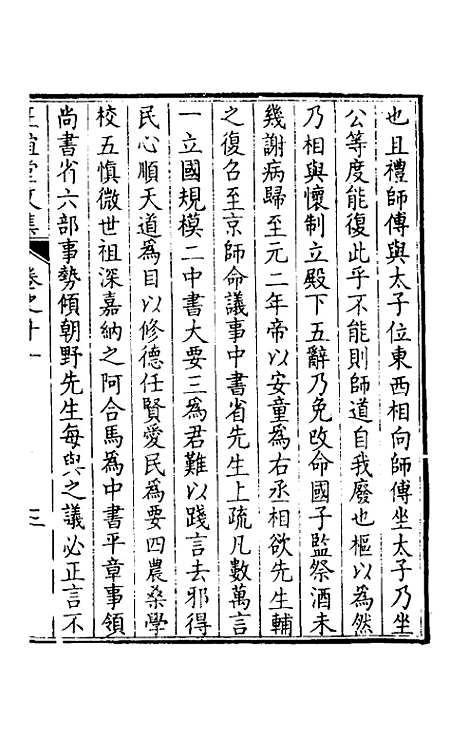 也且禮師傅與太子位東西相向師傅坐太子乃坐
公等度能復此乎不能則師道自我廢也樞以為然
乃相與懷制立殿下五辭乃免改命國子監祭酒未
幾謝病歸至元二年帝以安童為右丞相欲先生輔
之復召至京師命議事中書省先生上疏凡數萬言
一立國規模二中書大要三為君難以踐言去邪得
民心順天道為目以修德任賢愛民為要四農桑學
校五慎微世祖深嘉納之阿合馬為中書平章事領
尚書省六部事勢傾朝野先生每與之議必正言不
正誼堂文集
卷之十一
三